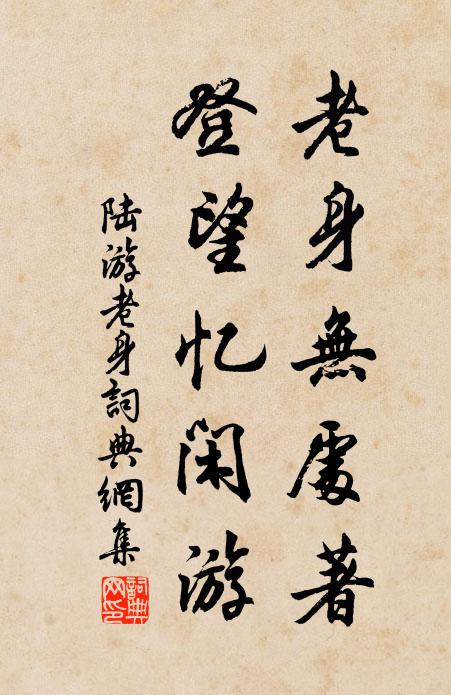 老身無處著
登望忆閑游
陆游老身詞典網集
詞典網印